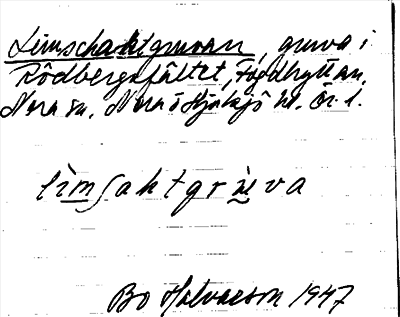 Limschaktgruvan, gruva i
Rödbergsfältet, Fogdhyttan,
Nora sn, Nora o Hjulsjö hd. Ör. l.
lìmʃaktgrùva
Bo Halvarson 1947